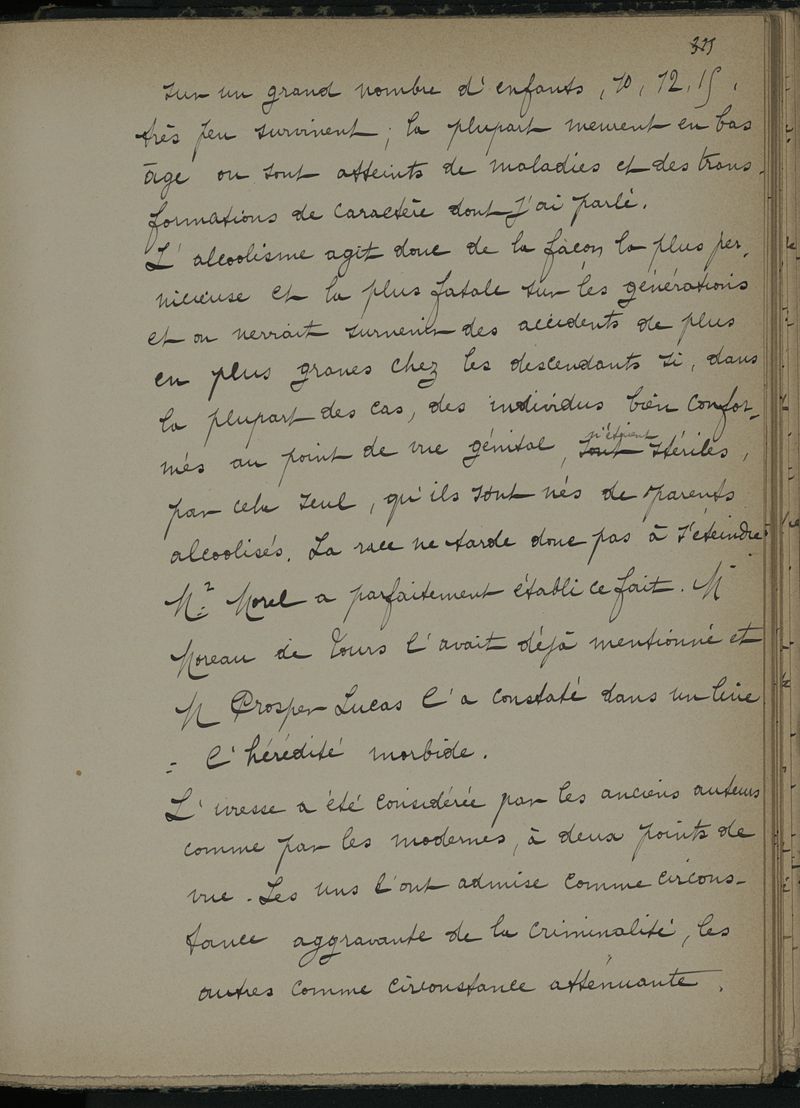 325
sur un grand nombre d'enfants, 10, 12, 15,
très peu survivent ; la plupart meurent en bas
âge ou sont atteints de maladies et des trans-
formations de caractère dont j'ai parlé.
L'alcoolisme agit donc de la façon la plus per-
nicieuse et la plus fatale sur les générations
et on verrait survenir des accidents de plus
en plus graves chez les descendants si, dans
la plupart des cas, des individus bien confor-
més au point de vue génital, sont n'étaient stériles,
par cela seul, qu'ils sont nés de parents
alcoolisés. La race ne tarde donc pas à s'éteindre
Mr Morel a parfaitement établi ce fait. M
Moreau de Tours l'avait déjà mentionné et
M Prosper Lucas l'a constaté dans un livre
= L'hérédité morbide.
L'ivresse a été considérée par les anciens auteurs
comme par les modernes, à deux points de
vue. Les uns l'ont admise comme circons-
tance aggravante de la criminalité, les
autres comme circonstance atténuante.